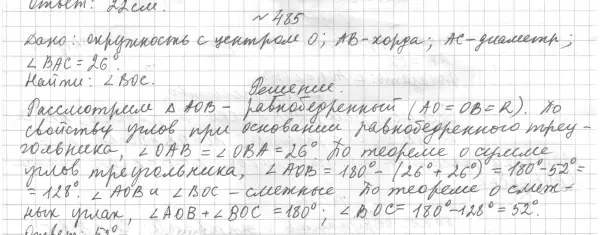 Ответ: 22 см.
№ 485
Дано: окружность с центром О; АВ-хорда; АС-диаметр;
∠BAC = 26°
Найти: ∠BOC.
Решение.
Рассмотрим △ АОВ - равнобедренный (АО = ОВ = R). По
свойству углов при основании равнобедренного треу-
гольника, ∠OAB = ∠OBA = 26° По теореме о сумме
углов треугольника, ∠AOB = 180° - (26° + 26°) = 180° - 52° =
= 128°. ∠AOB и ∠BOC - смежные. По теореме о смеж-
ных углах, ∠AOB + ∠BOC = 180°; ∠BOC = 180° - 128° = 52°.
Ответ: 52°